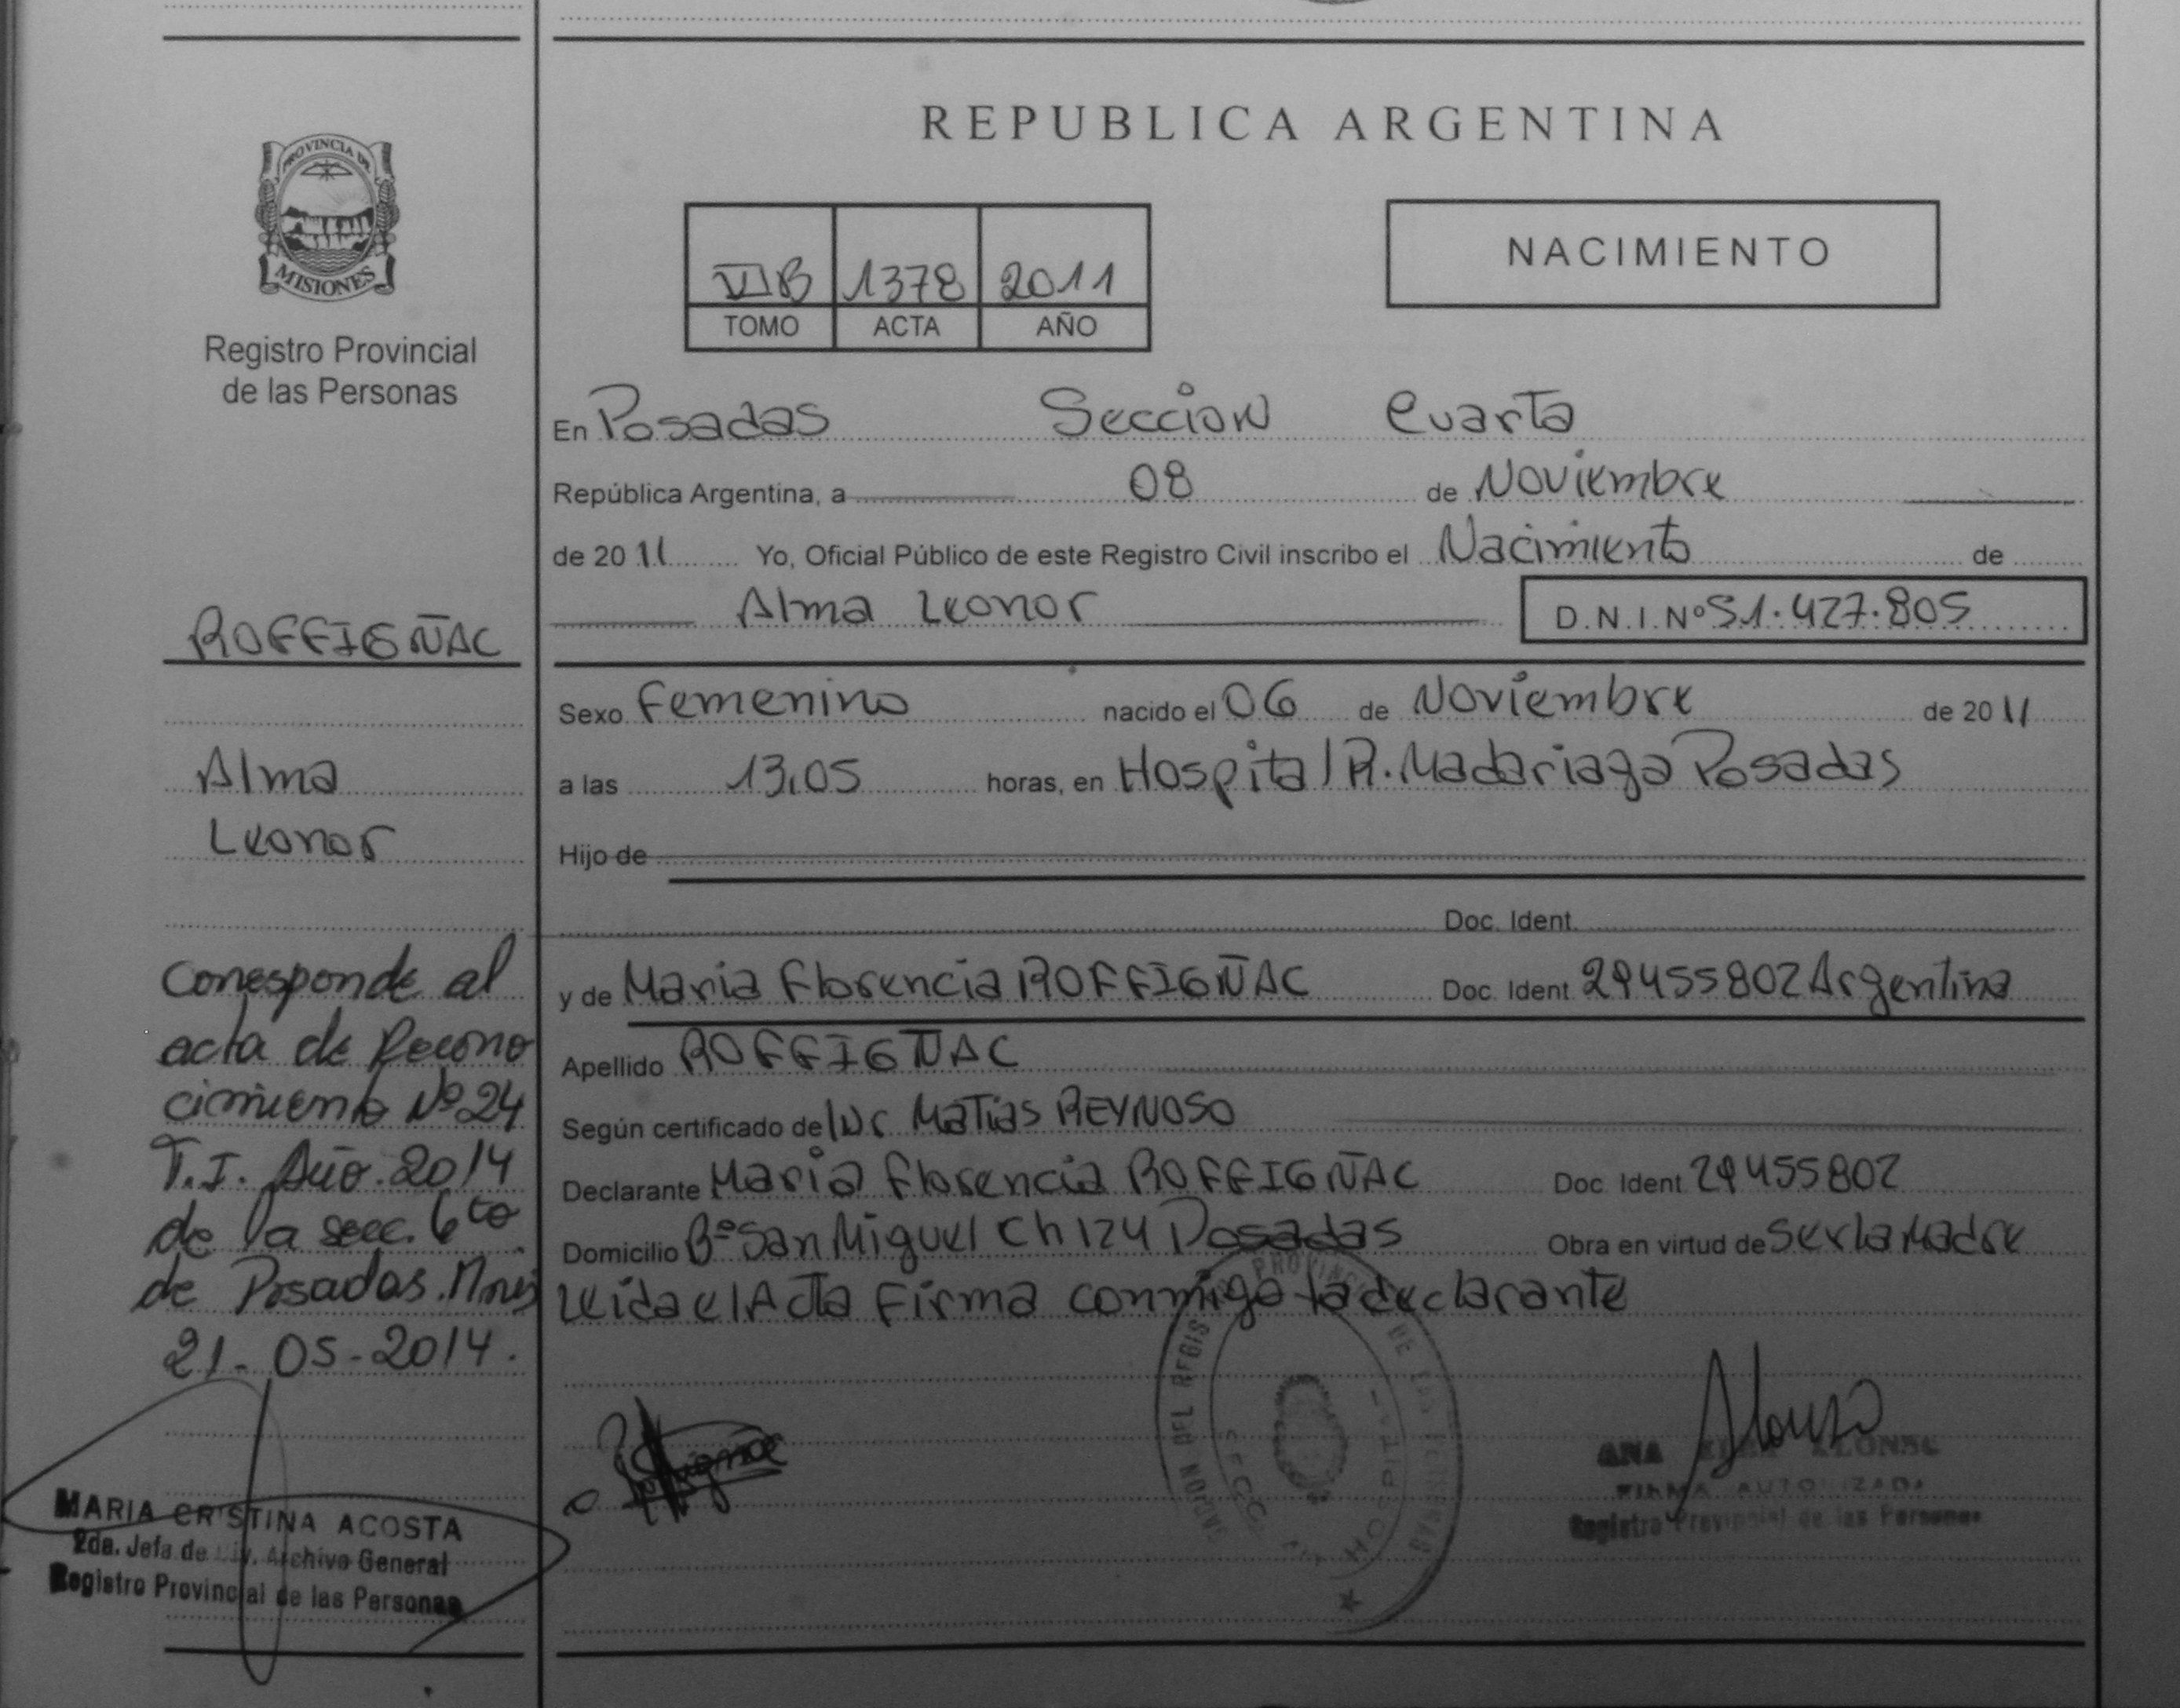 PROVINCIA DE
MISIONES
Registro Provincial
de las Personas
ROFFIGÑAC
Alma
Leonor
Corresponde al
acta de Recono
cimiento Nº 24
T.I. Año. 2014
de la secc. 6to
de Posadas. Mnes
21-05-2014.
MARIA CRISTINA ACOSTA
2da. Jefa de Div. Archivo General
Registro Provincial de las Personas
REPUBLICA ARGENTINA
VIB 1378 2011
TOMO ACTA AÑO
NACIMIENTO
En Posadas Sección Cuarta
República Argentina, a 08 de Noviembre
de 2011 Yo, Oficial Público de este Registro Civil inscribo el Nacimiento de
Alma Leonor D.N.I. Nº 51.427.805
Sexo Femenino nacido el 06 de Noviembre de 2011
a las 13,05 horas, en Hospital R. Madariaga Posadas
Hijo de
Doc. Ident.
y de Maria Florencia ROFFIGÑAC Doc. Ident 29455802 Argentina
Apellido ROFFIGÑAC
Según certificado de Matias REYNOSO
Declarante Maria Florencia ROFFIGÑAC Doc Ident 29455802
Domicilio Bº San Miguel Ch 124 Posadas Obra en virtud de ser la Madre
leida el Acta Firma conmigo la declarante
Alonso
ANA ALONSO
FIRMA AUTORIZADA
Registro Provincial de las Personas